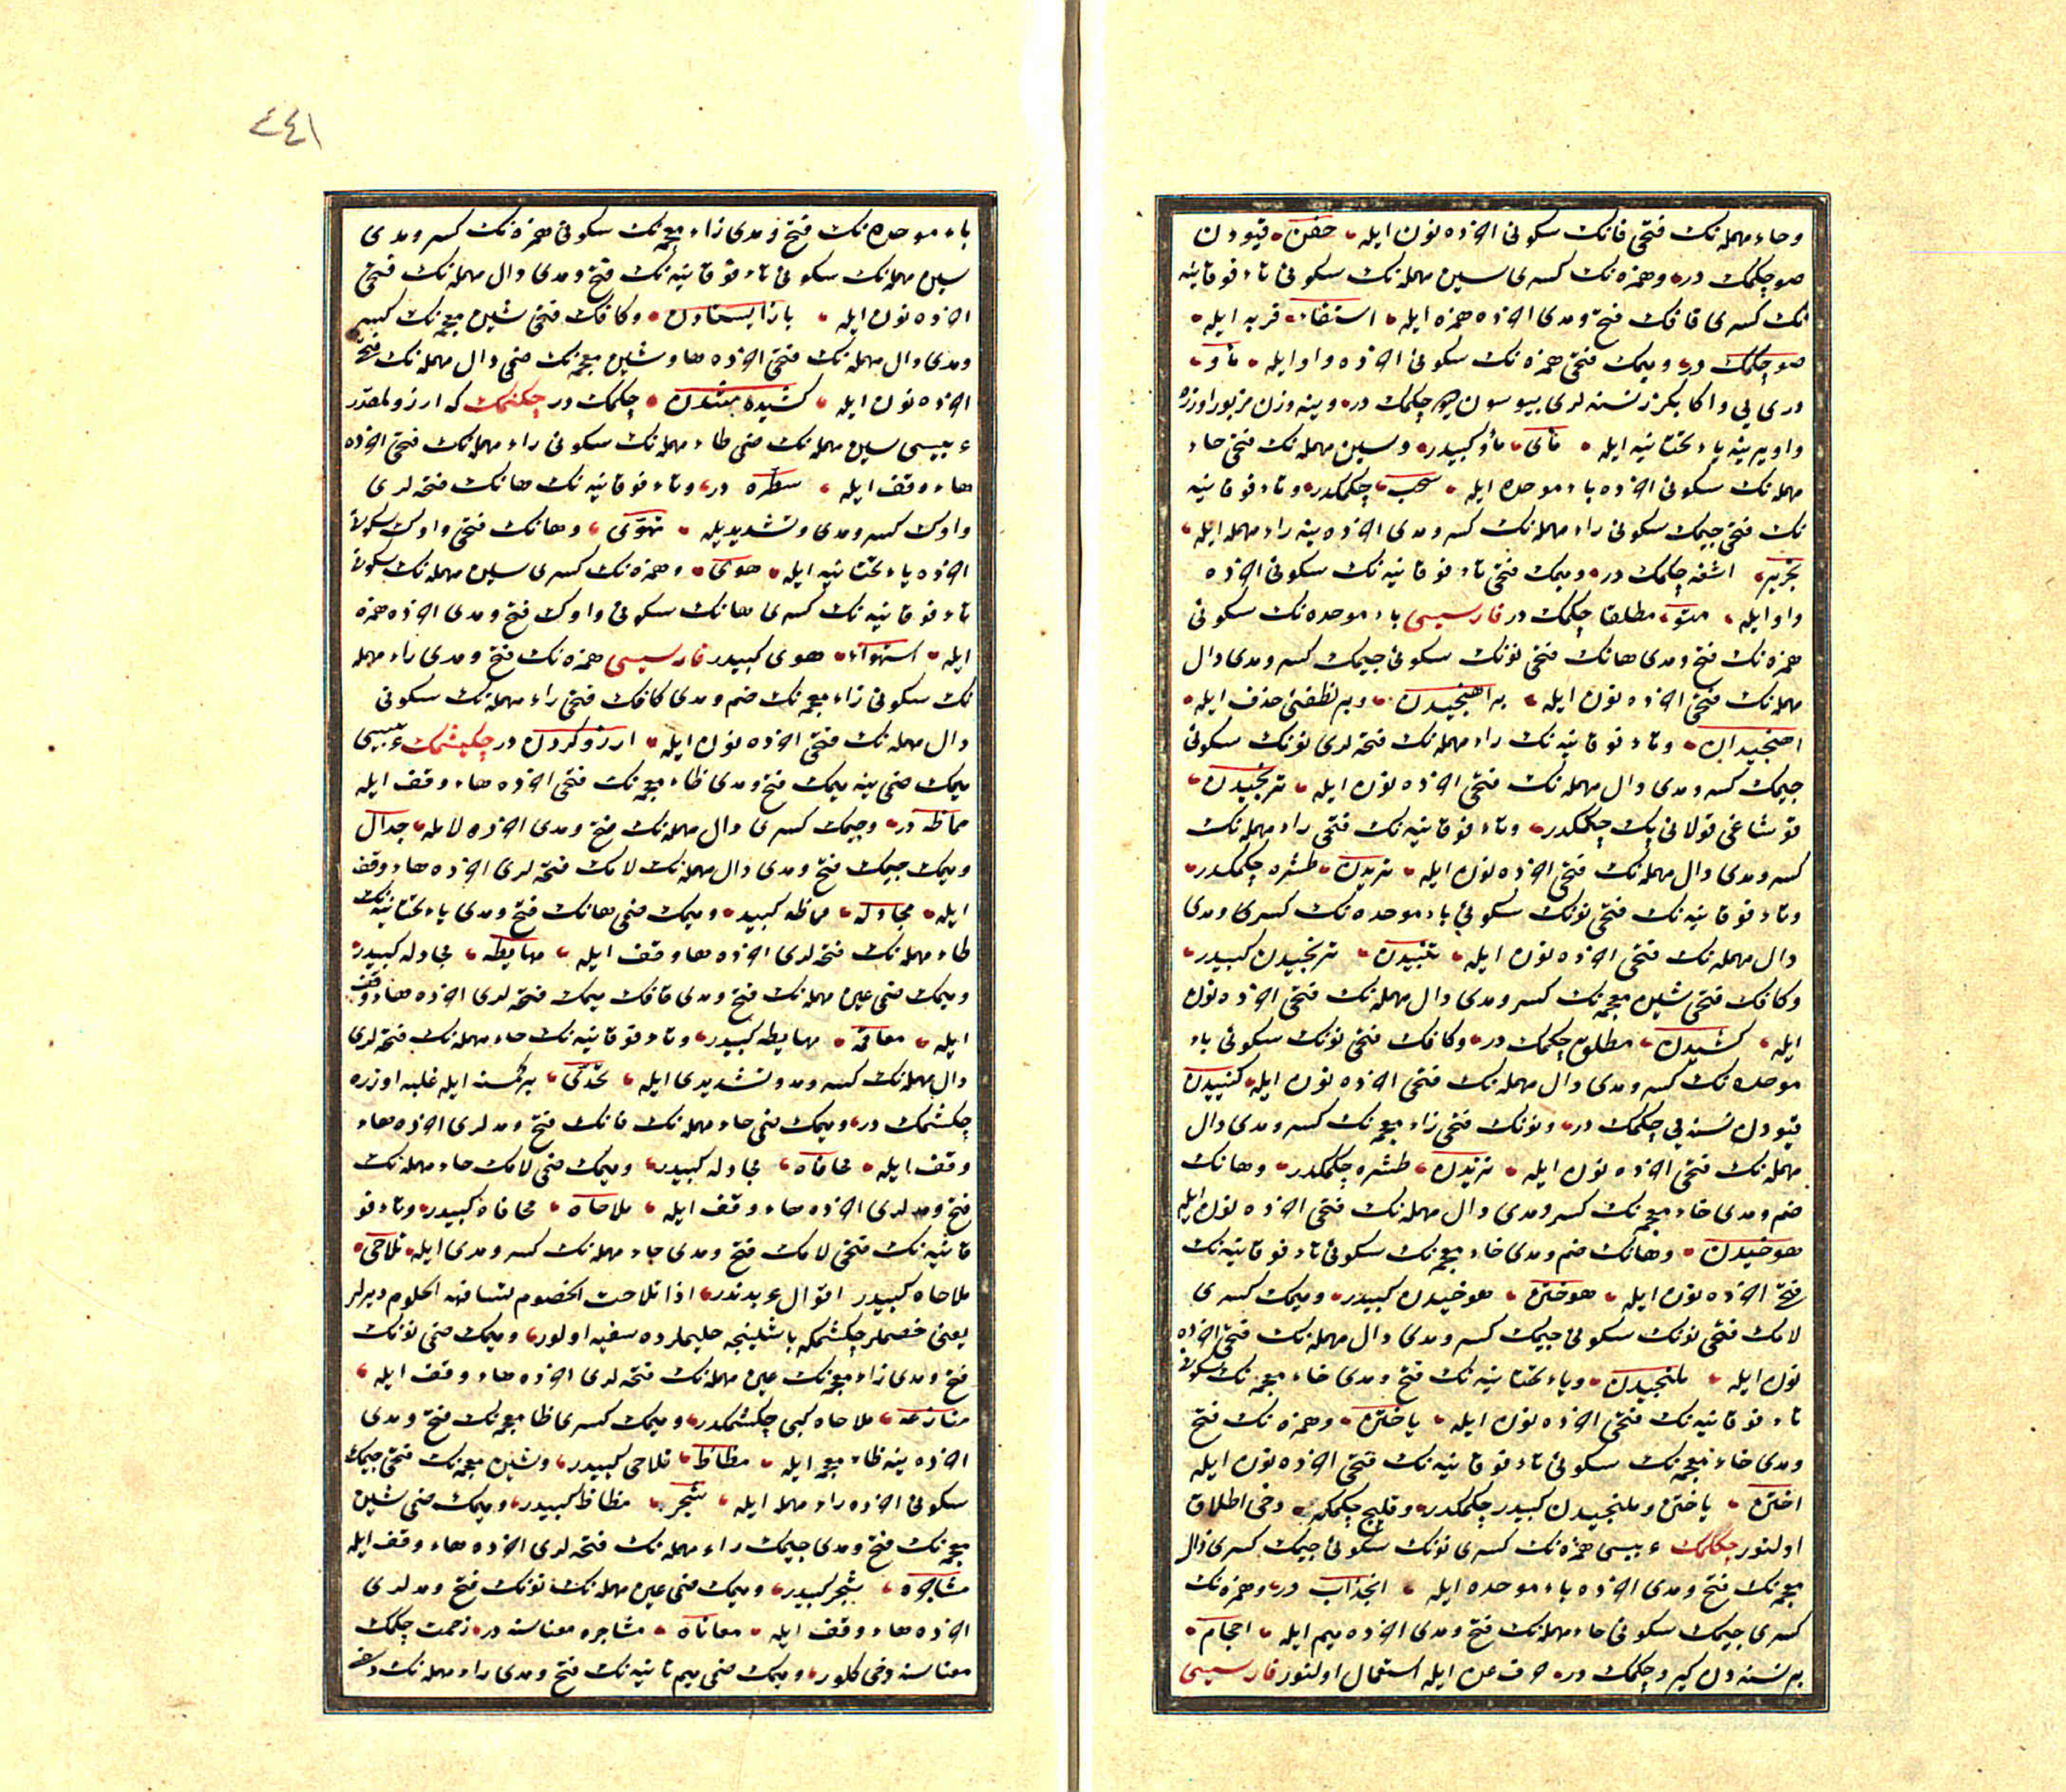 وحاء مهمله نک فتحی فانک سکونی اخرده نون ایله حفن قیودن
صو چکمک در وهمزه نک کسری سین مهمله نک سکونی تاء فوقانیه
نک کسری قافک فتح ومدی اخرده همزه ایله استقاء قربه ایله
صو چکمک در ومیمک فتحی همزه نک سکونی اخرده واو ایله مأو
دری یی واکا بکزر نسنه لری چکمک در وینه وزن مزبور اوزره
واو یرینه یاء تحتانیه ایله مأی مأو کبیدر وسین مهمله نک فتحی حاء
مهمله نک سکونی اخرده باء موحده ایله سحب چکمکدر وتاء فوقانیه
نک فتحی جیمک سکونی راء مهمله نک کسر ومدی اخرده ینه راء مهمله ایله
تجریر چکمک در ومیمک فتحی تاء فوقانیه نک سکونی اخرده
واو ایله متو مطلقا چکمک در فارسیسی باء موحده نک سکونی
همزه نک فتح ومدی هانک فتحی نونک سکونی جیمک کسر ومدی دال
مهمله نک فتحی اخرده نون ایله براهنجیدن وبر لفظنی حذف ایله
اهنجیدن وتاء فوقانیه نک راء مهمله نک فتحه لری نونک سکونی
جیمک کسر ومدی دال مهمله نک فتحی اخرده نون ایله ترنجیدن
قوشاغی قولانی پک چکمکدر وتاء فوقانیه نک فتحی راء مهمله نک
کسر ومدی دال مهمله نک فتحی اخرده نون ایله تریدن طشره چکمکدر
وتاء فوقانیه نک فتحی نونک سکونی باء موحده نک کسری ومدی
دال مهمله نک فتحی اخرده نون ایله تنبیدن ترنجیدن کبیدر
وکافک فتحی شین معجمه نک کسر ومدی دال مهمله نک فتحی اخرده نون
ایله کشیدن چکمک در وکافک فتحی نونک سکونی باء
موحده نک کسر ومدی دال مهمله نک فتحی اخرده نون ایله کنبیدن
قیودن نسنه یی چکمک در ونونک فتحی زاء معجمه نک کسر ومدی دال
مهمله نک فتحی اخرده نون ایله نزیدن طشره چکمکدر وهانک
ضم ومدی خاء معجمه نک کسر ومدی دال مهمله نک فتحی اخرده نون ایله
هوخیدن وهانک ضم ومدی خاء معجمه نک سکونی تاء فوقانیه نک
فتحی اخرده نون ایله هوختن هوخیدن کبیدر ومیمک کسری
لامک فتحی نونک سکونی جیمک کسر ومدی دال مهمله نک فتحی اخرده
نون ایله ملنجیدن ویاء تحتانیه نک فتح ومدی خاء معجمه نک سکونی
تاء فوقانیه نک فتحی اخرده نون ایله یاختن وهمزه نک فتح
ومدی خاء معجمه نک سکونی تاء فوقانیه نک فتحی اخرده نون ایله
اختن یاختن وملنجیدن کبیدر چکمکدر وقلیج چکمکه دخی اطلاق
اولنور چکلمک عربیسی همزه نک کسری نونک سکونی جیمک کسری ذال
معجمه نک فتح ومدی اخرده باء موحده ایله انجذاب در وهمزه نک
کسری جیمک سکونی حاء مهمله نک فتح ومدی اخرده میم ایله احجام
بر نسنه دن کیرو چکمک در حرف عن ایله استعمال اولنور فارسیسی
٤٤١
باء موحده نک فتح ومدی زاء معجمه نک سکونی همزه نک کسر ومدی
سین مهمله نک سکونی تاء فوقانیه نک فتح ومدی دال مهمله نک فتحی
اخرده نون ایله بازایستادن وکافک فتحی شین معجمه نک کسر
ومدی دال مهمله نک فتحی اخرده ها وشین معجمه نک ضمی دال مهمله نک فتحی
اخرده نون ایله کشیده شدن چکمک در چکنمک که ارزولمقدر
عربیسی سین مهمله نک ضمی طاء مهمله نک سکونی راء مهمله نک فتحی اخرده
هاء وقف ایله سطره در وتاء فوقانیه نک هانک فتحه لری
واوک کسر ومدی وتشدیدیله تهوی وهانک فتحی واوک سکونی
اخرده یاء تحتانیه ایله هوی وهمزه نک کسری سین مهمله نک سکونی
تاء فوقانیه نک کسری هانک سکونی واوک فتح ومدی اخرده همزه
ایله استهواء هوی کبیدر فارسیسی همزه نک فتح ومدی راء مهمله
نک سکونی زاء معجمه نک ضم ومدی کافک فتحی راء مهمله نک سکونی
دال مهمله نک فتحی اخرده نون ایله ارزو کردن در چکیشمک عربیسی
میمک ضمی ینه میمک فتح ومدی ظاء معجمه نک فتحی اخرده هاء وقف ایله
مماظه در وجیمک کسری دال مهمله نک فتح ومدی اخرده لامله جدال
ومیمک جیمک فتح ومدی دال مهمله نک لامک فتحه لری اخرده هاء وقف
ایله مجادله مماظه کبیدر ومیمک ضمی هانک فتح ومدی یاء تحتانیه نک
طاء مهمله نک فتحه لری اخرده هاء وقف ایله مهایطه مجادله کبیدر
ومیمک ضمی عین مهمله نک فتح ومدی قافک میمک فتحه لری اخرده هاء وقف
ایله معاقمه مهایطه کبیدر وتاء فوقانیه نک حاء مهمله نک فتحه لری
دال مهمله نک کسر ومد وتشدیدی ایله تحدی بر کمسنه ایله غلبه اوزره
چکشمک در ومیمک ضمی حاء مهمله نک فانک فتح ومدلری اخرده هاء
وقف ایله محافاه مجادله کبیدر ومیمک ضمی لامک حاء مهمله نک
فتح ومدلری اخرده هاء وقف ایله ملاحاه محافاه کبیدر وتاء فو
قانیه نک فتحی لامک فتح ومدی حاء مهمله نک کسر ومدی ایله تلاحی
ملاحاه کبیدر اقوال عربدندر اذا تلاحت الخصوم تسافهه الحلوم دیرلر
یعنی خصملر چکشمکه باشلینجه حلیملرده سفیه اولور ومیمک ضمی نونک
فتح ومدی زاء معجمه نک عین مهمله نک فتحه لری اخرده هاء وقف ایله
منازعه ملاحاه کبی چکشمکدر ومیمک کسری ظا معجمه نک فتح ومدی
اخرده ینه ظاء معجمه ایله مظاظ تلاحی کبیدر وشین معجمه نک فتحی جیمک
سکونی اخرده راء مهمله ایله شجر مظاظ کبیدر ومیمک ضمی شین
معجمه نک فتح ومدی جیمک راء مهمله نک فتحه لری اخرده هاء وقف ایله
مشاجره شجر کبیدر ومیمک ضمی عین مهمله نک نونک فتح ومدلری
اخرده هاء وقف ایله معاناه مشاجره معناسنه در زحمت چکمک
معناسنه دخی کلور ومیمک ضمی میم ثانیه نک فتح ومدی راء مهمله نک